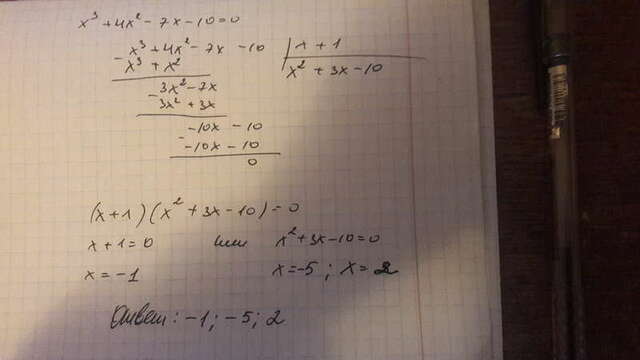 x³+4x²-7x-10=0
-x³+4x²-7x-10 | x+1
x³+x² | x²+3x-10
-3x²-7x
3x²+3x
--10x-10
-10x-10
0
(x+1)(x²+3x-10)=0
x+1=0 или x²+3x-10=0
x=-1 x=-5; x=2
Ответ: -1; -5; 2